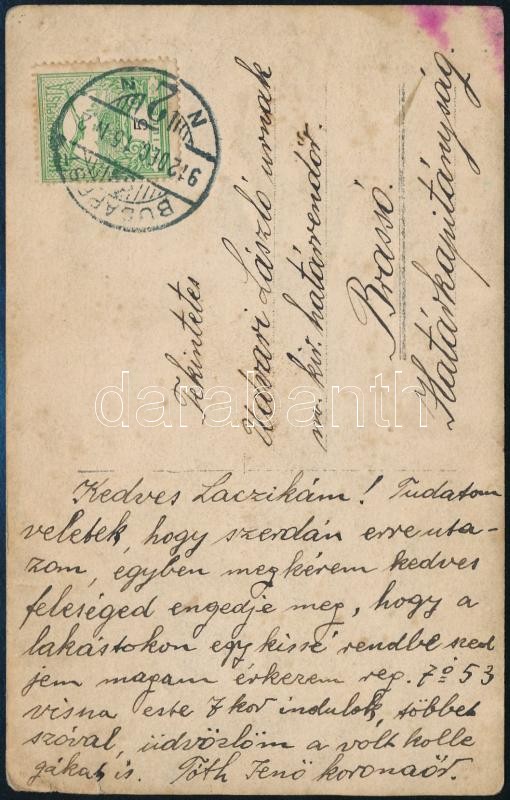 BUDAPEST
912 DEC
5
Tekintetes
Udvari László urnak
m. kir. határrendőr.
Brassó.
Határkapitányság.
darabanth
Kedves Laczikám! Tudatom
veletek, hogy szerdán erre uta-
zom, egyben megkérem kedves
feleséged engedje meg, hogy a
lakástokon egy kissé rendbe szed
jem magam érkezem reg. 7 ó 53
visna este 7 kor indulok, többet
szóval, üdvözlöm a vólt kolle
gákat is. Tóth Jenő koronaőr.